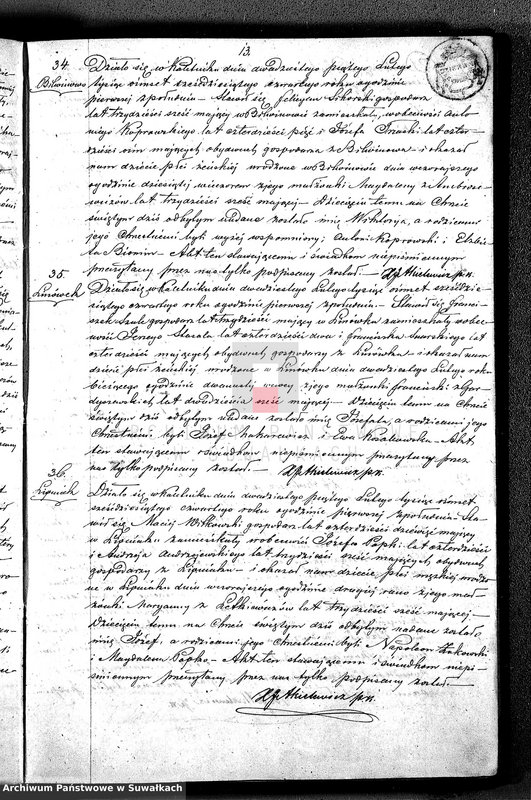 13.
34.
Bilwinowo
Działo się w Kaletniku dnia dwudziestego piątego Lutego
tysiąc ośmset sześćdziesiątego czwartego roku o godzinie
pierwszej z południa. Stawił się Felicyan gospodarz
lat trzydzieści sześć mający w Bilwinowie zamieszkały, w obecności Anto-
niego Koprowskiego lat czterdzieści pięć i Józefa lat czter-
dzieści ośm mających obydwóch gospodarzy z Bilwinowa i okazał
nam dziecię płci żeńskiej urodzone w Bilwinowie dniu wczorajszym
o godzinie dziesiątej wieczorem z jego małżonki Magdaleny z Ambroze-
wiczów lat trzydzieści sześć mającej Dziecięciu temu na Chrzcie
świętym dziś odbytym nadane zostało imię Wiktorja, a rodzicami
jego Chrzestnemi byli wyżej wspomniony Antoni Koprowski i Elżbie-
ta Akt ten stawającemu i świadkom niepiśmiennym
przeczytany przez nas tylko podpisany został.
35.
Linówek
Działo się w Kaletniku dnia dwudziestego Lutego tysiąc ośmset sześćdzie-
siątego czwartego roku o godzinie pierwszej z południa. Stawił się Franci-
szek Szulc gospodarz lat trzydzieści mający w Linówku zamieszkały w obec-
ności Jerzego lat czterdzieści dwa i Franciszka lat
czterdzieści mających obydwóch gospodarzy z Linówka i okazał nam
dziecię płci żeńskiej urodzone w Linówku dnia dwudziestego Lutego roku
bieżącego o godzinie z jego małżonki Franciszki z
lat dwadzieścia sześć mającej Dziecięciu temu na Chrzcie
świętym dziś odbytym nadane zostało imię Józefata, a rodzicami jego
Chrzestnemi byli Józef Makarewicz i Ewa Akt
ten stawającemu i świadkom niepiśmiennym przeczytany przez
nas tylko podpisany został.
36.
Lipniak
Działo się w Kaletniku dnia dwudziestego piątego Lutego tysiąc ośmset
sześćdziesiątego czwartego roku o godzinie pierwszej z południa Sta-
wił się Maciej Witkowski gospodarz lat czterdzieści dziewięć mający
w Lipniaku zamieszkały w obecności Józefa Papki lat czterdzieści
i Andrzeja Andrzejewskiego lat trzydzieści sześć mających obydwóch
gospodarzy z Lipniaka i okazał nam dziecię płci męskiej urodzo-
ne w Lipniaku dniu wczorajszym o godzinie drugiej rano z jego mał-
żonki Maryanny z Letkiewiczów lat trzydzieści sześć mającej
Dziecięciu temu na Chrzcie świętym dziś odbytym nadane zostało
imię Józef, a rodzicami jego Chrzestnemi byli Napoleon
i Magdalena Papko Akt ten stawającemu i świadkom niepi-
śmiennym przeczytany przez nas tylko podpisany został.
Archiwum Państwowe w Suwałkach